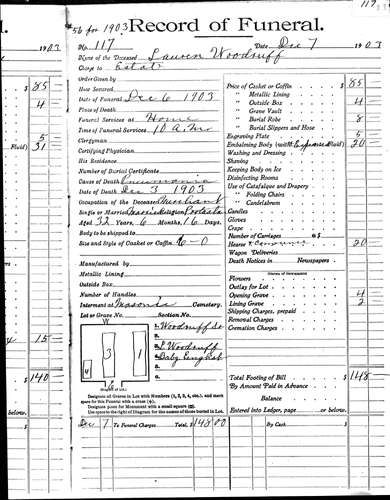 117
#56 for 1903
Record of Funeral.
1903
No. 117
Date Dec 7 1903
Name of the Deceased Lauren Woodruff
Charge to Estate
Order Given by
How Secured
Date of Funeral Dec 6 1903
Place of Death
Funeral Services at Home
Time of Funeral Services 10 A.M.
Clergyman
Certifying Physician
His Residence
Number of Burial Certificate
Cause of Death Pneumonia
Date of Death Dec 3 1903
Occupation of the Deceased Merchant
Single or Married Married Religion Protesta
Aged 32 Years, 6 Months, 16 Days.
Body to be shipped to
Size and Style of Casket or Coffin, 6-0
Manufactured by
Metallic Lining
Outside Box
Number of Handles
Interment at Masonic Cemetery.
Lot or Grave No. Section No.
4 3 1
1. Woodruff Sr
2.
3. L Woodruff
4. Baby
Diagram of Lot.
Designate all Graves in Lot with Numbers (1, 2, 3, 4, etc.), and mark
space for this Funeral with a star (*).
Designate place for Monument with a small square (□).
Use space to the right of Diagram for the names of those buried in Lot.
Price of Casket or Coffin 85
" Metallic Lining
" Outside Box 4
" Grave Vault
" Burial Robe 8
" Burial Slippers and Hose
Engraving Plate 5
Embalming Body (with Fluid) 20
Washing and Dressing
Shaving
Keeping Body on Ice
Disinfecting Rooms
Use of Catafalque and Drapery
" Folding Chairs
" Candelabrum
Candles
Gloves
Crape
Number of Carriages @ $
Hearse 20
Wagon Deliveries
Death Notices in Newspapers
(Names of Newspapers)
Flowers
Outlay for Lot
Opening Grave 4
Lining Grave 2
Shipping Charges, prepaid
Removal Charges
Cremation Charges
Total Footing of Bill $148
By Amount Paid in Advance
Balance
Entered into Ledger, page or below.
Dec 7 To Funeral Charges Total, $148 00
By Cash
$ 85
4
5
Fluid) 31
15
$ 140
below.